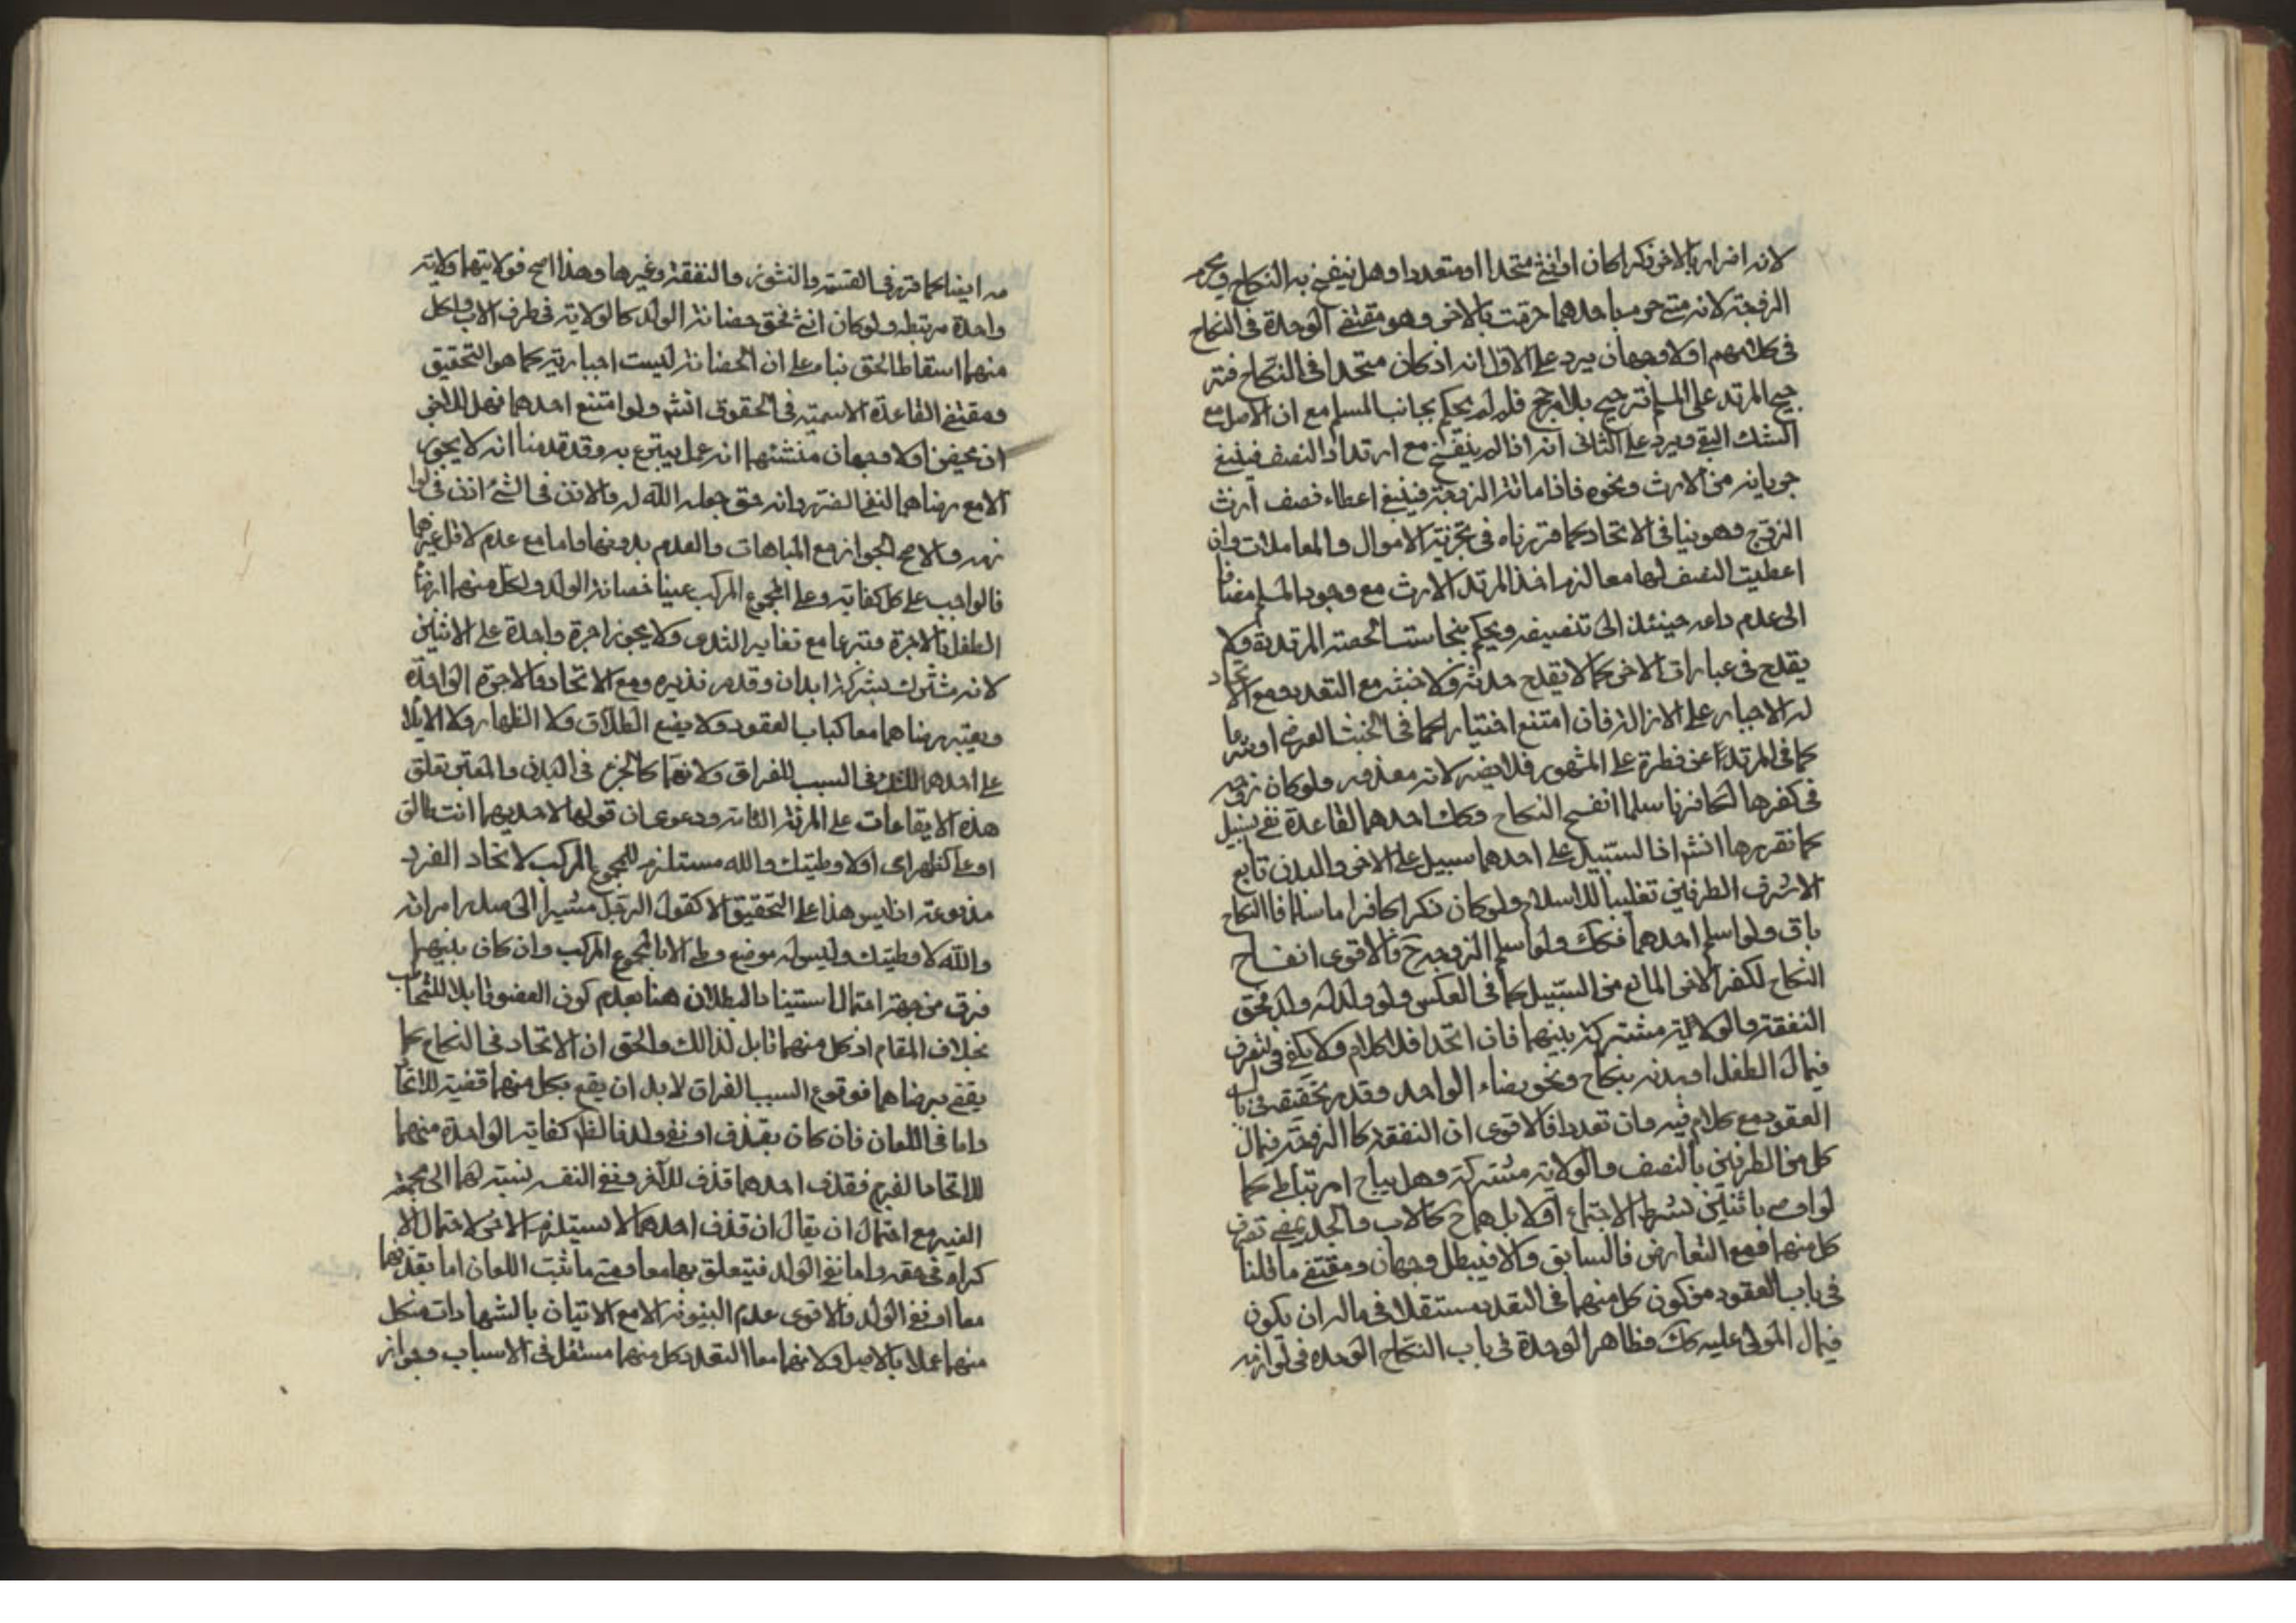 لانه اضرار بالاخر ذكرا كان او انثى متحدا او متعددا وهل ينفسخ به النكاح ويحرم
الزوجة لانه متى حرم باحدهما حرمت بالاخر وهو مقتضى الوحدة فى النكاح
فى كلامهم او لا وجهان يرد على الاول انه اذ كان متحدا فى النكاح فتر
جيح المرتد على المسلم ترجيح بلا مرجح فلم لم يحكم بجانب المسلم مع ان الاصل مع
الشك البقـ ويرد على الثانى انه اذا لم ينفسخ مع ارتداد النصف فينبغى
جريانه من الارث ونحوه فاذا ماتت الزوجة فينبغى اعطاء نصف ارث
الزوج وهو ينافى الاتحاد كما قررناه فى تجزية الاموال والمعاملات وان
اعطيت النصف لهما معا لزم اخذ المرتد الارث مع وجود المسلم مضافا
الى عدم داعى حينئذ الى تنصيفه ويحكم بنجاسة الحصة المرتدية ولا
يقدح فى عبارات الاخر كما لا يقدح حدثه ولا خبثه مع التعدد ومع الاتحاد
له الاجبار على الازالة فان امتنع اختيارا كما فى الخبث العرضى او شرعا
كما فى المرتد عن فطرة على المشهور فلا يضر لانه معذور ولو كان زوجه
فى كفرها لكافر فاسلما انفسخ النكاح وكك احدهما لقاعدة نفى سبيل
كما تقررها انثى اذ السبيل على احدهما سبيل على الاخر والبدن تابع
لاشرف الطرفين تغليبا للاسلام ولو كان ذكرا كافرا ماسلما فالنكاح
باق ولو اسلم احدهما فكك ولو اسلم الزوجة ح فالاقوى انفساخ
النكاح لكفر الاخر المانع من السبيل كما فى العكس ولو ولد له ولد فحق
النفقة والولاية مشتركة بينهما فان اتحدا فلا كلام ولا يكفى فى التصرف
فى مال الطفل او بدنه بنكاح ونحوه رضاء الواحد وقد مر تحقيقه فى باب
العقود مع كلام فيه وان تعددا فالاقوى ان النفقة كالزوجة فى مال
كل من الطرفين بالنصف والولاية مشتركة وهل يباح ارتباطى كما
لو اوصى باثنين بشرط الاجتماع او لا بل هما ح كالاب والجد يمضى تصرف
كل منهما ومع التعارض فالسابق والا فيبطل وجهان ومقتضى ما قلنا
فى باب العقود من كون كل منهما فى التعدد مستقلا فى ماله ان يكون
فى مال المولى عليه كك فظاهر الوحدة فى باب النكاح الوحدة فى لوازمه
مه ايضا كما قررفى القسمة والنشوز والنفقة وغيرها وهذا اصح فولايتهما ولاية
واحدة مرتبطه ولو كان انثى فحق حضانة الولد كالولاية فى طرف الاب ولكل
منهما اسقاط الحق بناء على ان الحضانة ليست اجبارية كما هو التحقيق
ومقتضى القاعدة الاسمية فى الحقوق انثى ولو امتنع احدهما فهل للاخر
ان يحضن او لا وجهان منشئهما انه عمل يتبرع به وقد قدمنا انه لا يجوز
الا مع رضاهما لنفى الضرر وانه حق جعله الله له والاذن فى الشئ اذن فى لوا
زمه والاصح الجواز مع المباهات والعدم بدونها واما مع عدم الاقل غيرهما
فالواجب على كل كفاية وعلى المجموع المركب عينا حضانة الولد ولكل منهما ارضاع
الطفل بالاجرة وتبرعا مع تغاير الثدى ولا يجوز اجرة واحدة على الاثنين
لانه مشترك بشركة ابدان وقد مر نذيره ومع الاتحاد والاجرة الواحدة
ويعتبر رضاهما معا كباب العقود ولا يقع الطلاق ولا الظهار ولا الايلاء
على احدهما للشك فى السبب للفراق ولانهما كالجزء فى البدن والمعتبر تعلق
هذه الايقاعات على المرئة التامة ودعوى ان قولها لاحديهما انت طالق
او على كظهر امى او لا وطيتك والله مستلزم للمجموع المركب لاتحاد الفرد
مدفوعة اذ ليس هذا على التحقيق الا كقول الرجل مشيرا الى صدر امرائه
والله لا وطيتك وليس له موضع وطى الا بالمجموع المركب وان كان بينهما
فرق من جهة احتمال استيناد البطلان هنا بعدم كون العضو قابلا للخطاب
بخلاف المقام اذ كل منهما قابل لذالك والحق ان الاتحاد فى النكاح كما
يقضى برضاهما فوقوع السبب الفراق لا بد ان يقع بكل منهما قضية للاتحاد
واما فى اللعان فان كان بقذف او نفى ولد فالظ كفاية الواحدة منهما
للاتحاد الفرج فقذف احدهما قذف للاخر ونفى النفـ نسبة لهما الى
الغير مع احتمال ان يقال ان قذف احدهما لا يستلزم الاخر لاحتمال الا
كراه فى حقه واما نفى الولد فيتعلق بهما معا ومتى ما ثبت اللعان اما بقذفهما
معا او نفى الولد فالاقوى عدم البينونة الا مع الاتيان بالشهادات من كل
منهما عملا بالاصل ولانهما معا التعدد كل منهما مستقل فى الاسباب وجواز